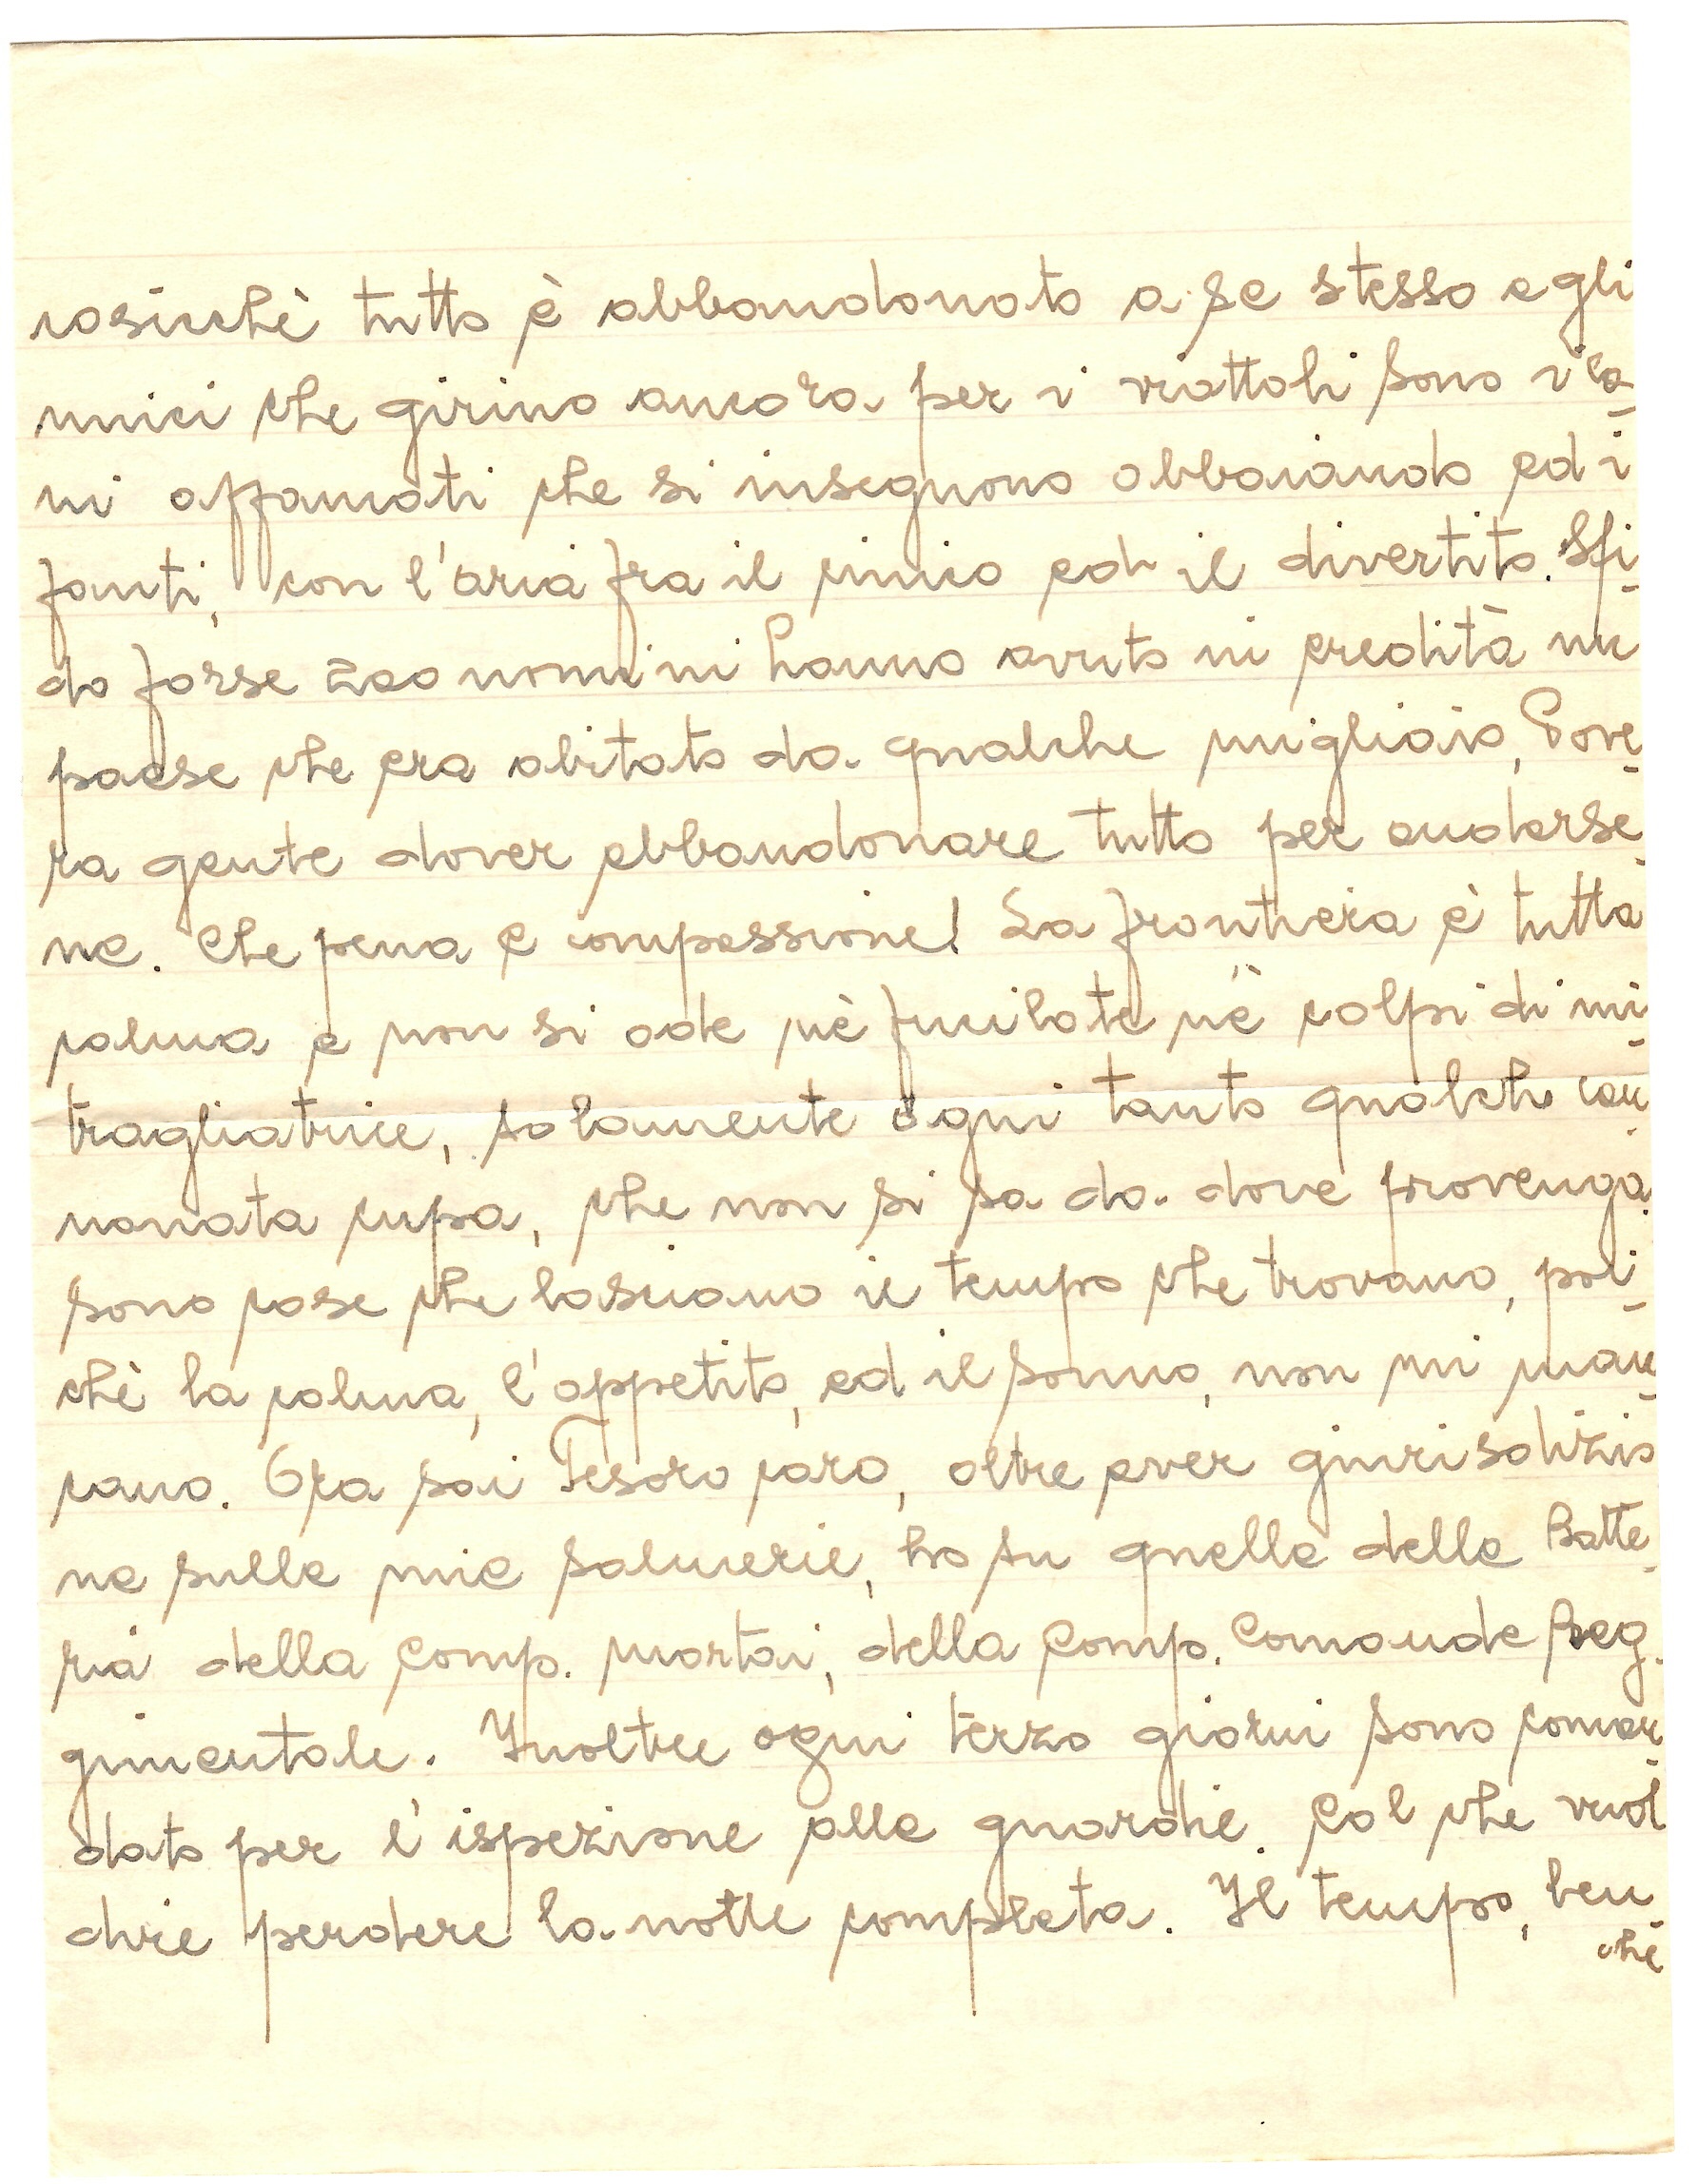 cosicchè tutto è abbandonato a se stesso e gli
unici che girino ancora per i viottoli sono i ca-
ni affamati che si inseguono abbaiando ed i
fanti, con l'aria fra il cinico ed il divertito. Sfi-
do forse 200 uomini hanno avuto in eredità un
paese che era abitato da qualche migliaio, Pove-
ra gente dover abbandonare tutto per andarse-
ne. Che pena e compassione! La frontiera è tutta
calma e non si ode nè fucilate nè colpi di mi-
tragliatrice, solamente ogni tanto qualche can-
nonata cupa, che non si sa da dove provenga.
Sono cose che lasciano il tempo che trovano, poi-
chè la calma, l'appetito, ed il sonno, non mi man-
cano. Ora sai Tesoro caro, oltre aver giurisdizio
ne sulle mie salmerie, ho su quelle delle Batte-
ria della Comp. mortai, della Comp. Comande Reg-
gimentale. Inoltre ogni terzo giorni sono coman-
dato per l'ispezione alle guardie. Col che vuol
dire perdere la notte completa. Il tempo, ben-
chè